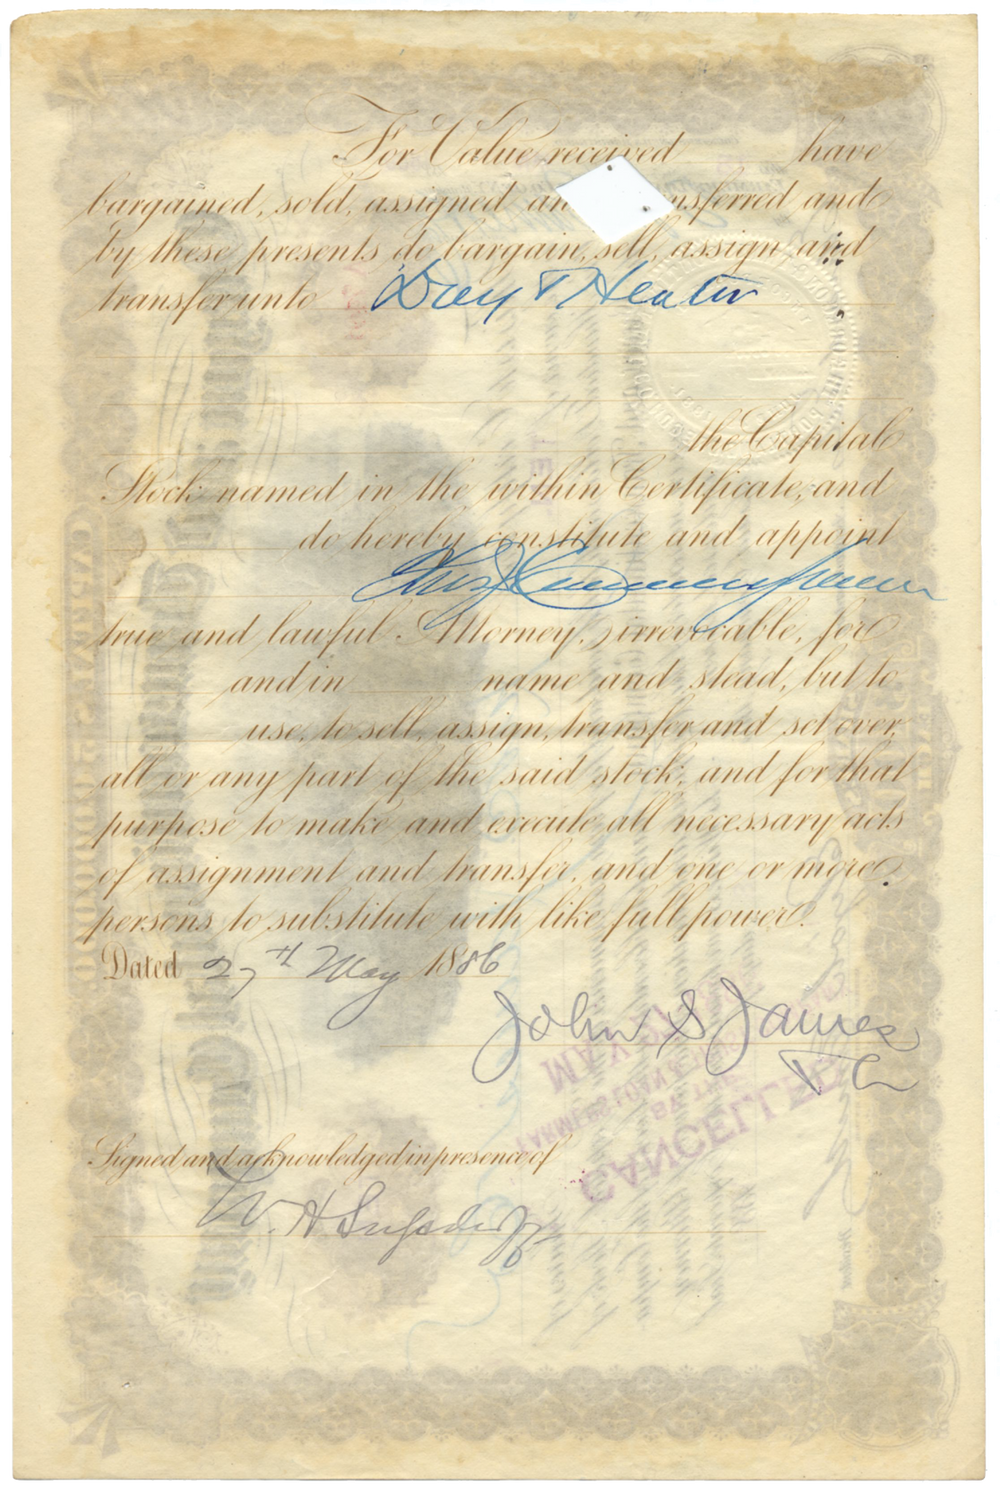 For Value received have
bargained, sold, assigned an nsferred and
by these presents do bargain, sell, assign and
transfer unto Day & Heaton
the Capital
Stock named in the within Certificate, and
do hereby constitute and appoint
true and lawful Attorney, irrevocable, for
and in name and stead, but to
use, to sell, assign, transfer and set over,
all or any part of the said stock, and for that
purpose to make and execute all necessary acts
of assignment and transfer, and one or more
persons to substitute with like full power.
Dated 27th May 1886
John S James
Signed and acknowledged in presence of
W. H.
CANCELLED